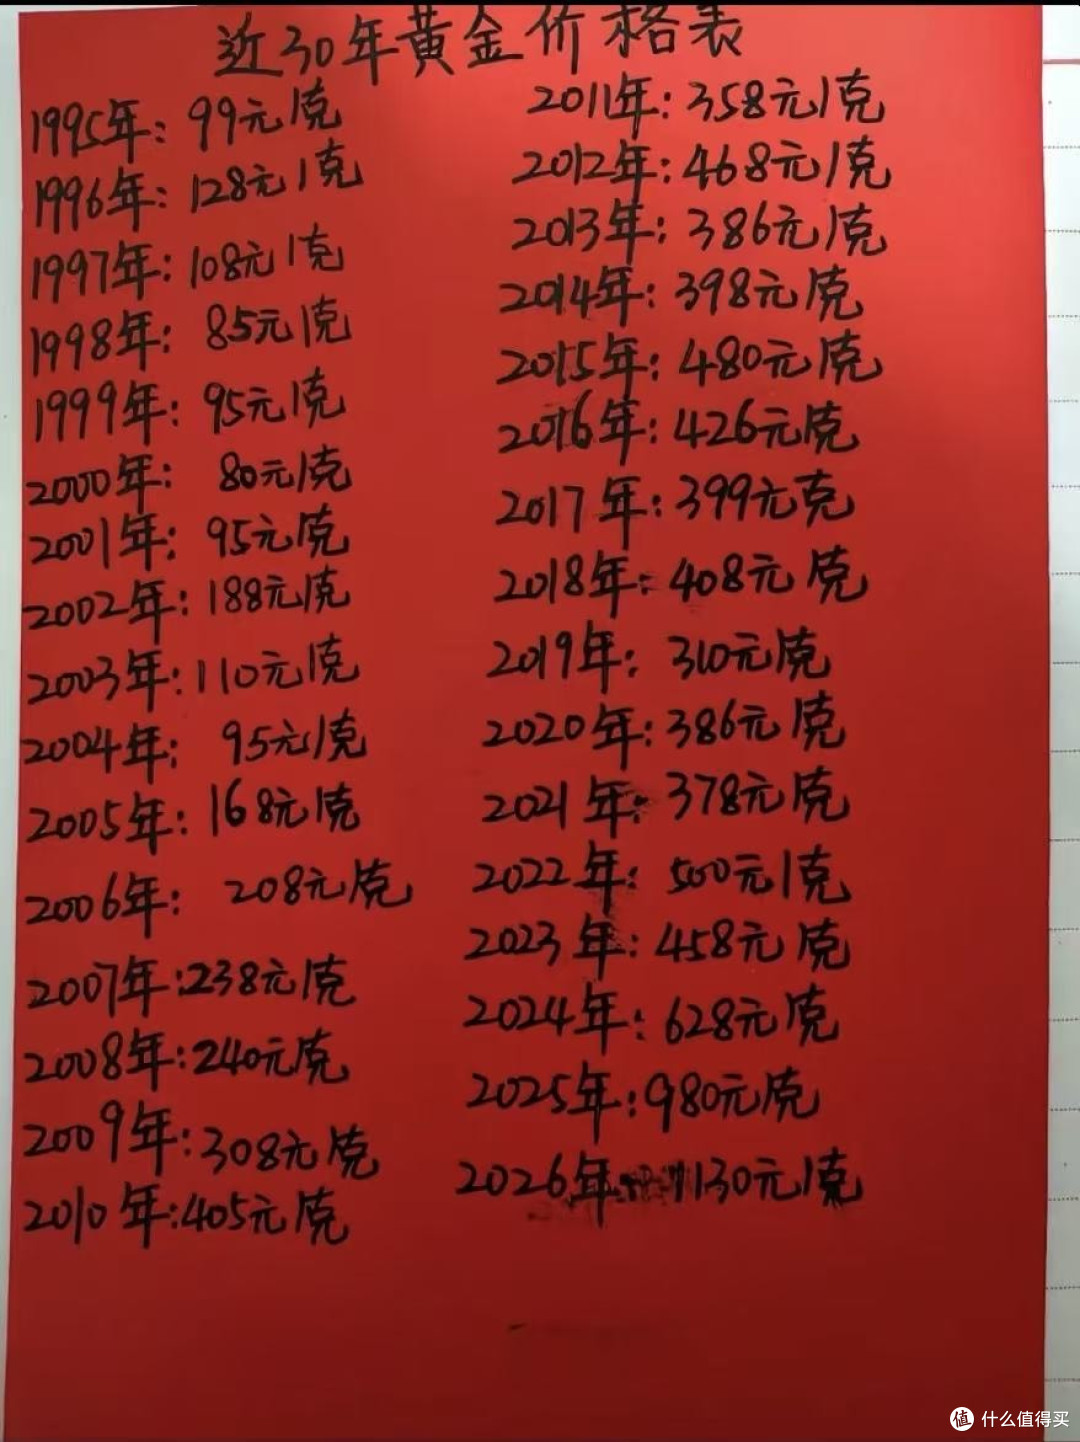 近30年黄金价格表
1995年: 99元/克
1996年: 128元/克
1997年: 108元/克
1998年: 85元/克
1999年: 95元/克
2000年: 80元/克
2001年: 95元/克
2002年: 188元/克
2003年: 110元/克
2004年: 95元/克
2005年: 168元/克
2006年: 208元/克
2007年: 238元/克
2008年: 240元/克
2009年: 308元/克
2010年: 405元/克
2011年: 358元/克
2012年: 468元/克
2013年: 386元/克
2014年: 398元/克
2015年: 480元/克
2016年: 426元/克
2017年: 399元/克
2018年: 408元/克
2019年: 310元/克
2020年: 386元/克
2021年: 378元/克
2022年: 500元/克
2023年: 458元/克
2024年: 628元/克
2025年: 980元/克
2026年: 1130元/克
值 什么值得买